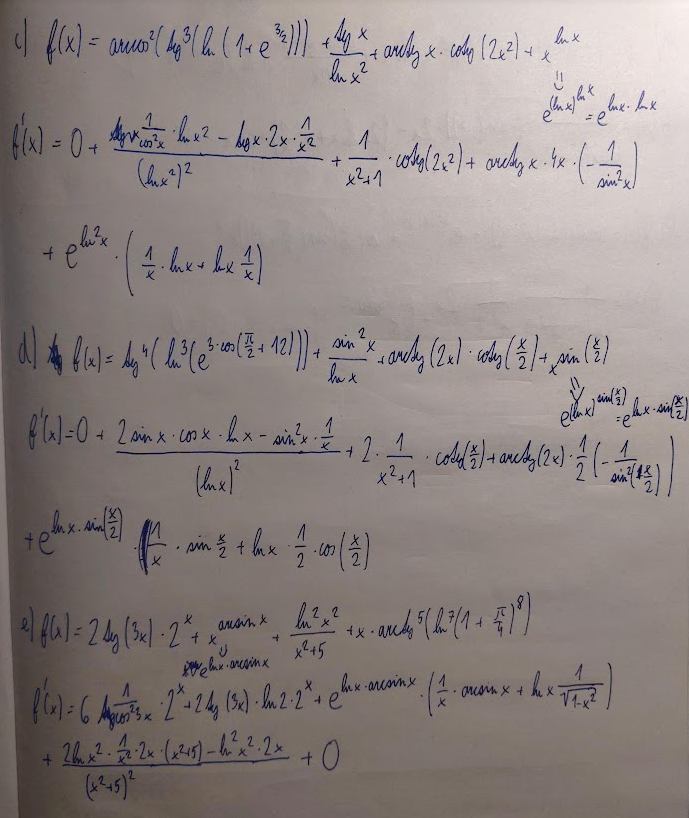 c) f(x) = arccos²(tg³(ln(1+e^{3/2}))) + \frac{tg x}{ln x²} + arctg x · cotg(2x²) + x^{ln x}
= e^{(ln x)^{ln x}} = e^{ln x · ln x}
f'(x) = 0 + \frac{\frac{1}{cos²x} · ln x² - tg x · 2x · \frac{1}{x²}}{(ln x²)²} + \frac{1}{x²+1} · cotg(2x²) + arctg x · 4x · (-\frac{1}{sin²x})
+ e^{ln²x} · (\frac{1}{x} · ln x + ln x \frac{1}{x})
d) f(x) = tg⁴(ln³(e^{3·cos(\frac{π}{2}+12)})) + \frac{sin²x}{ln x} + arctg(2x) · cotg(\frac{x}{2}) + x^{sin(\frac{x}{2})}
= e^{(ln x)^{sin(\frac{x}{2})}} = e^{ln x · sin(\frac{x}{2})}
f'(x) = 0 + \frac{2 sin x · cos x · ln x - sin²x · \frac{1}{x}}{(ln x)²} + 2 · \frac{1}{x²+1} · cotg(\frac{x}{2}) + arctg(2x) · \frac{1}{2} (-\frac{1}{sin²(\frac{x}{2})})
+ e^{ln x · sin(\frac{x}{2})} · (\frac{1}{x} · sin \frac{x}{2} + ln x · \frac{1}{2} · cos(\frac{x}{2})
e) f(x) = 2 tg(3x) · 2^x + x^{arcsin x} + \frac{ln²x²}{x²+5} + x · arctg⁵(ln⁷(1+\frac{π}{4})⁸)
= e^{ln x · arcsin x}
f'(x) = 6 \frac{1}{cos²3x} · 2^x + 2 tg(3x) · ln 2 · 2^x + e^{ln x · arcsin x} · (\frac{1}{x} · arcsin x + ln x \frac{1}{\sqrt{1-x²}})
+ \frac{2 ln x² · \frac{1}{x²} · 2x · (x²+5) - ln²x² · 2x}{(x²+5)²} + 0